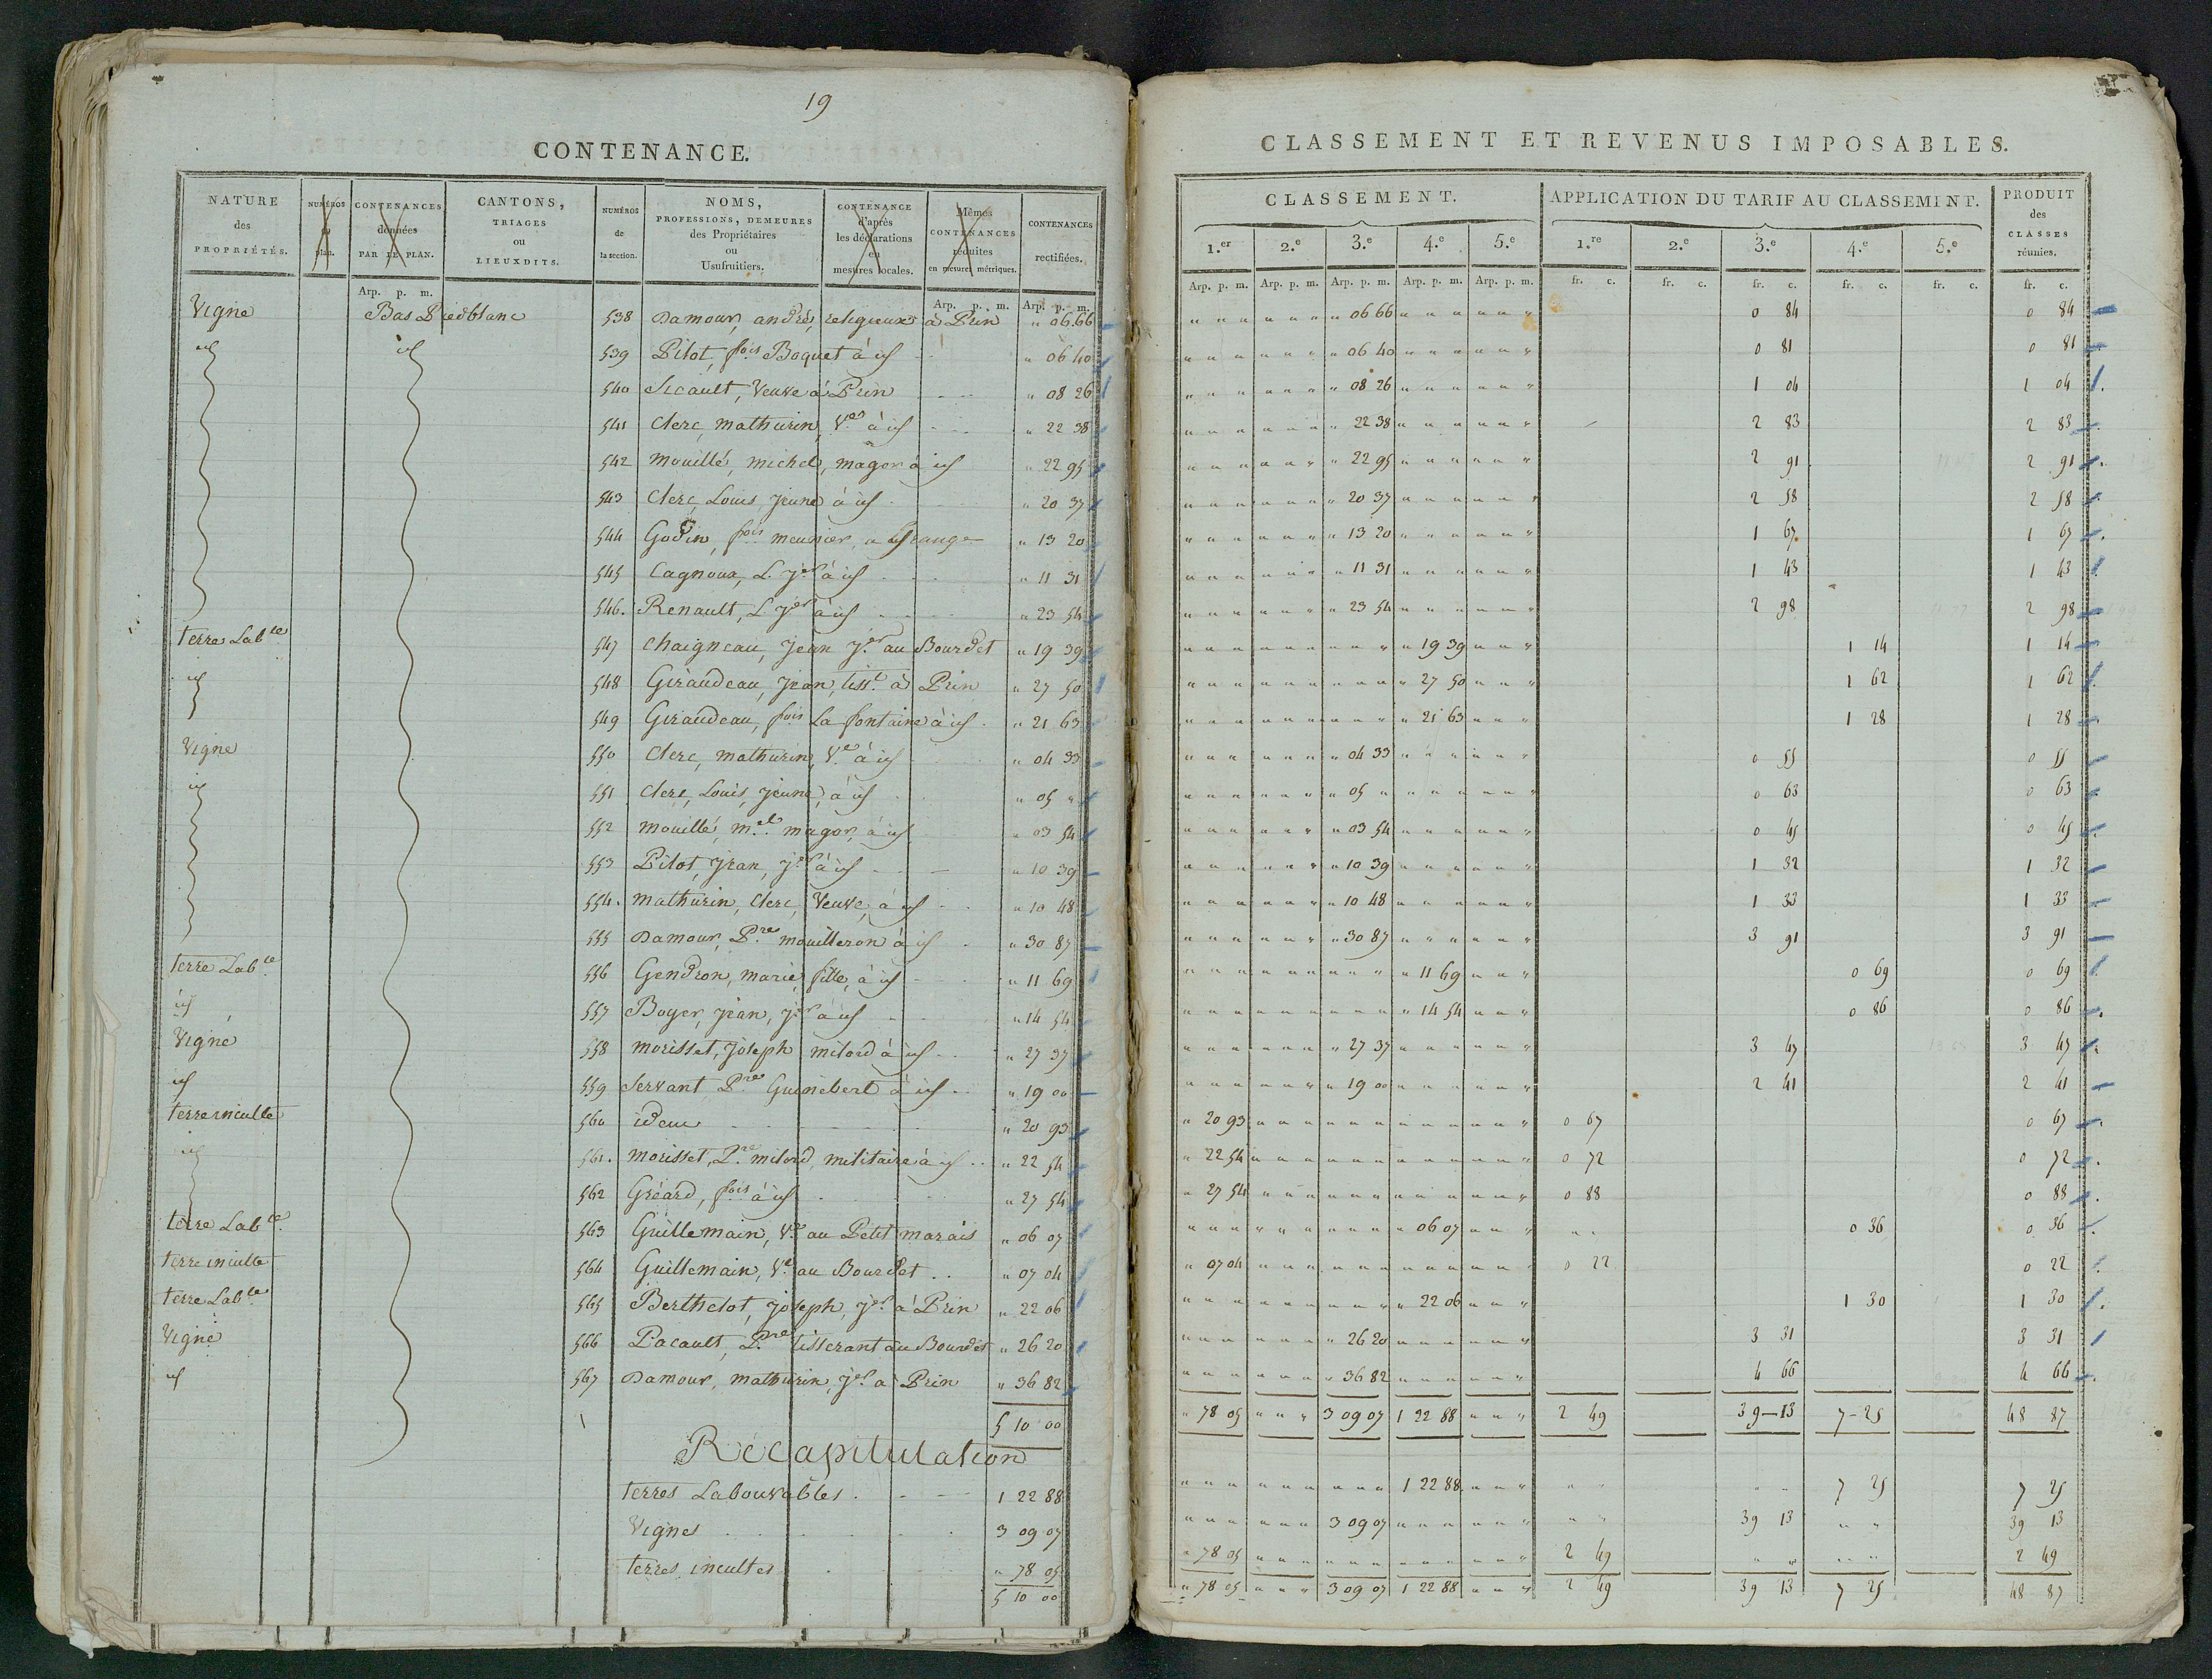 19
CONTENANCE.
NATURE des PROPRIÉTÉS. | NUMÉROS du plan. | CONTENANCES données PAR LE PLAN. | CANTONS, TRIAGES ou LIEUXDITS. | NUMÉROS de la section. | NOMS, PROFESSIONS, DEMEURES des Propriétaires ou Usufruitiers. | CONTENANCE d'après les déclarations en mesures locales. | Mêmes CONTENANCES réduites en mesures métriques. | CONTENANCES rectifiées.
Arp. p. m. | Arp. p. m. | Arp. p. m.
Vigne Bas Piedblanc 538 Damour, andré, religieux à Prin " 06 66
id id 539 Pitot, fois Boquet à id " 06 40
540 Sicault, Veuve à Prin " 08 26
541 Clerc, mathurin, Ve à id " 22 38
542 Mouillé, michel, magor à id " 22 95
543 Clerc, Louis, jeune à id " 20 37
544 Godin, fois meunier, a Grange " 13 20
545 Cagnoux, L. Jer à id " 11 31
546. Renault, L Jer à id " 23 54
terre Lable 547 Chaigneau, Jean Jer au Bourdet " 19 39
id 548 Giraudeau, Jean, tisst à Prin " 27 50
549 Giraudeau, fois La fontaine à id " 21 63
Vigne 550 Clerc, mathurin, Ve à id " 04 33
id 551 Clerc, Louis, jeune, à id " 05 "
552 Mouillé, mel magor, à id " 03 54
553 Pitot, Jean, Jer à id " 10 39
554. Mathurin, Clerc, Veuve, à id " 10 48
555 Damour, Pre mouilleron à id " 30 87
terre Lable 556 Gendron, marie, fille, à id " 11 69
id 557 Boyer, Jean, Jer à id " 14 54
Vigne 558 Morisset, Joseph milord à id " 27 37
id 559 Servant Pre Guénébert à id " 19 00
terre inculte 560 idem " 20 93
id 561. Morisset, Pre milord, militaire à id " 22 54
562 Gréard, fois à id " 27 54
terre Lable 563 Guillemain, Ve au Petit marais " 06 07
terre inculte 564 Guillemain, Ve au Bourdet " 07 04
terre Lable 565 Berthelot, Joseph, Jer à Prin " 22 06
Vigne 566 Pacault, Pre tisserant au Bourdet " 26 20
id 567 Damour, mathurin, Jer à Prin " 36 82
5 10 00
Récapitulation
terres Labourables 1 22 88
Vignes 3 09 07
terres incultes " 78 05
5 10 00
CLASSEMENT ET REVENUS IMPOSABLES.
CLASSEMENT. | APPLICATION DU TARIF AU CLASSEMINT. | PRODUIT des CLASSES réunies.
1.er | 2.e | 3.e | 4.e | 5.e | 1.re | 2.e | 3.e | 4.e | 5.e
Arp. p. m. | Arp. p. m. | Arp. p. m. | Arp. p. m. | Arp. p. m. | fr. c. | fr. c. | fr. c. | fr. c. | fr. c. | fr. c.
" 06 66 0 84 0 84
" 06 40 0 81 0 81
" 08 26 1 04 1 04
" 22 38 2 83 2 83
" 22 95 2 91 2 91
" 20 37 2 58 2 58
" 13 20 1 67 1 67
" 11 31 1 43 1 43
" 23 54 2 98 2 98
" 19 39 1 14 1 14
" 27 50 1 62 1 62
" 21 63 1 28 1 28
" 04 33 0 55 0 55
" 05 " 0 63 0 63
" 03 54 0 45 0 45
" 10 39 1 32 1 32
" 10 48 1 33 1 33
" 30 87 3 91 3 91
" 11 69 0 69 0 69
" 14 54 0 86 0 86
" 27 37 3 47 3 47
" 19 00 2 41 2 41
" 20 93 0 67 0 67
" 22 54 0 72 0 72
" 27 54 0 88 0 88
" 06 07 0 36 0 36
" 07 04 0 22 0 22
" 22 06 1 30 1 30
" 26 20 3 31 3 31
" 36 82 4 66 4 66
" 78 05 " " " 3 09 07 1 22 88 " " " 2 49 39-13 7-25 48 87
1 22 88 7 25 7 25
3 09 07 39 13 39 13
" 78 05 2 49 2 49
" 78 05 " " " 3 09 07 1 22 88 " " " 2 49 39 13 7 25 48 87